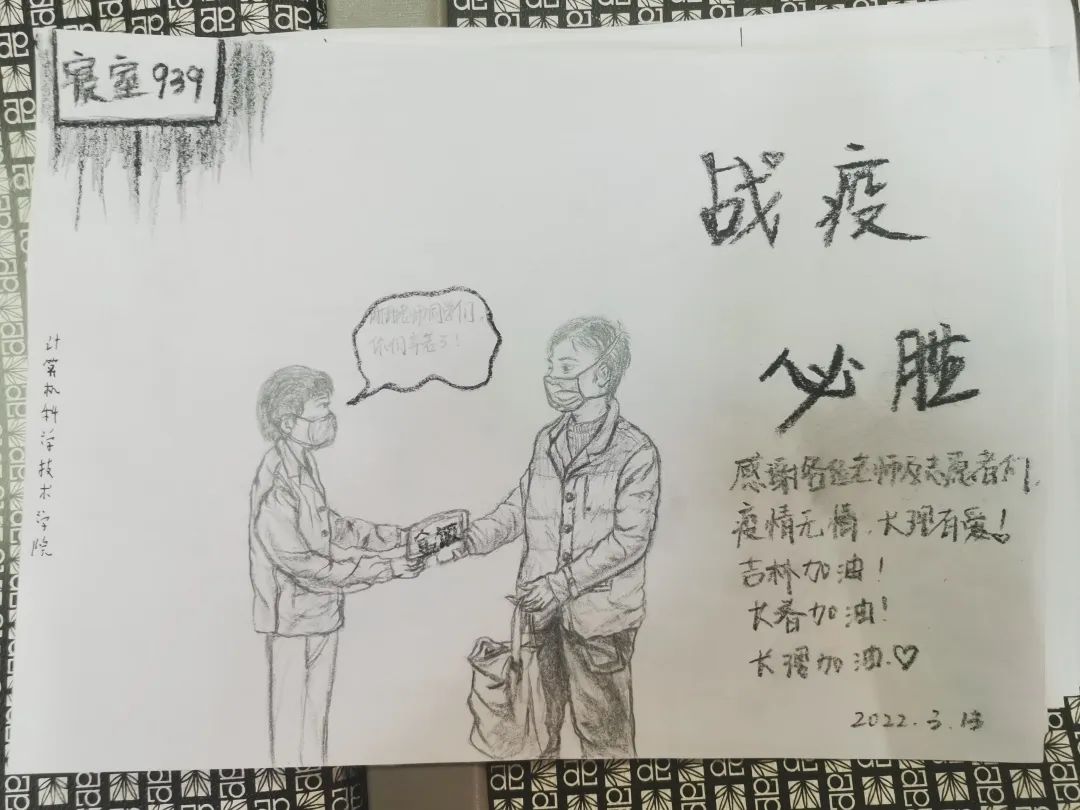 寝室939
战疫
必胜
计算机科学技术学院
你们辛苦了!
感谢各位老师及志愿者们,
疫情无情,长理有爱!
吉林加油!
长春加油!
长理加油.♡
2022.3.13